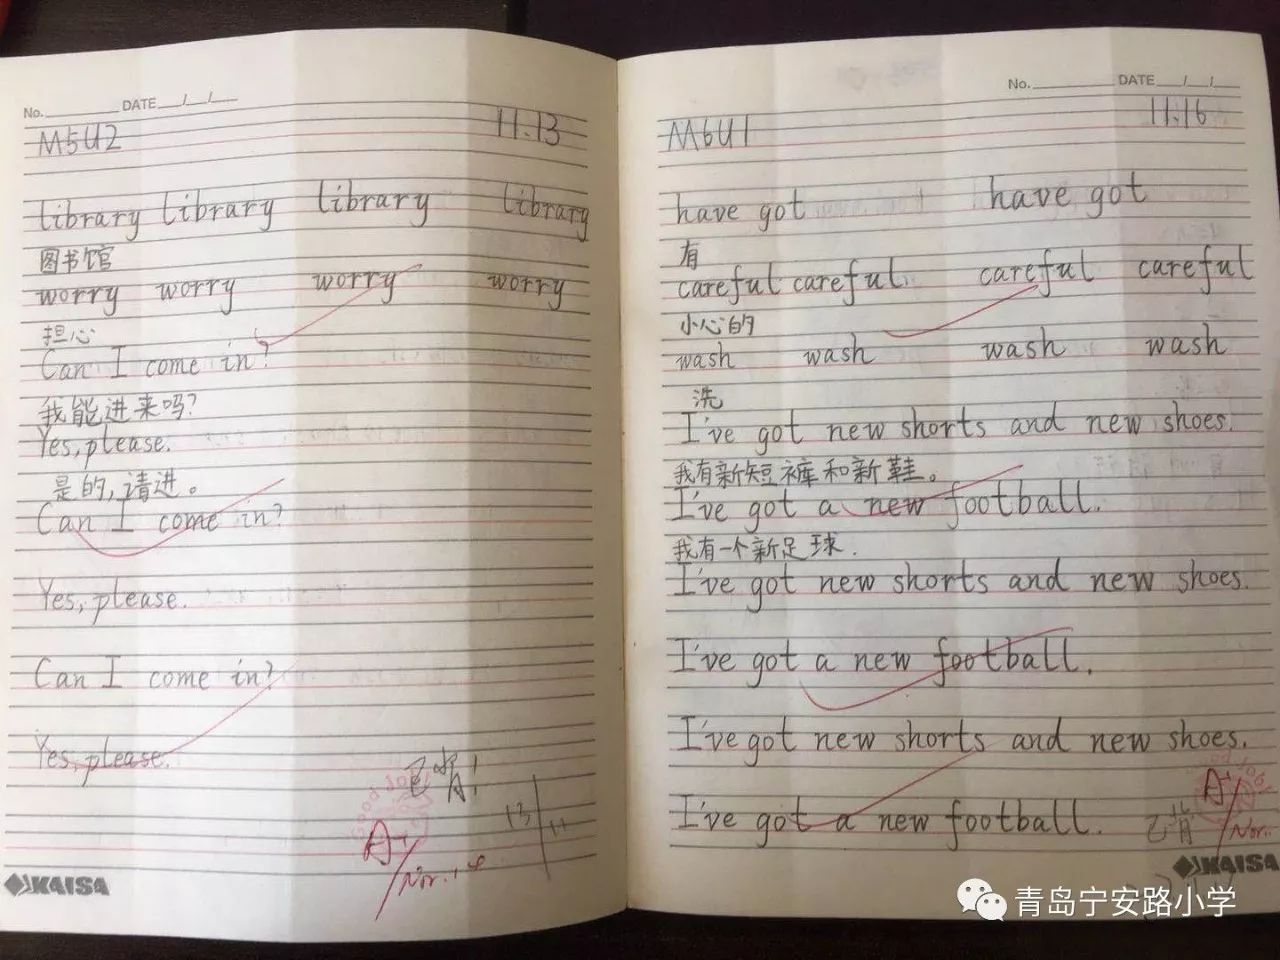 No. DATE / /
M5U2 11.13
library library library library
图书馆
worry worry worry worry
担心
Can I come in?
我能进来吗?
Yes, please.
是的,请进。
Can I come in?
Yes, please.
Can I come in?
Yes, please.
已背!
Good Job!
A+
Nov. 14
KAISA
No. DATE / /
M6U1 11.16
have got have got
有
careful careful. careful careful
小心的
wash wash wash wash
洗
I've got new shorts and new shoes.
我有新短裤和新鞋。
I've got a new football.
我有一个新足球.
I've got new shorts and new shoes.
I've got a new football.
I've got new shorts and new shoes.
I've got a new football.
已背
Good Job!
A+
Nov.
KAISA
青岛宁安路小学